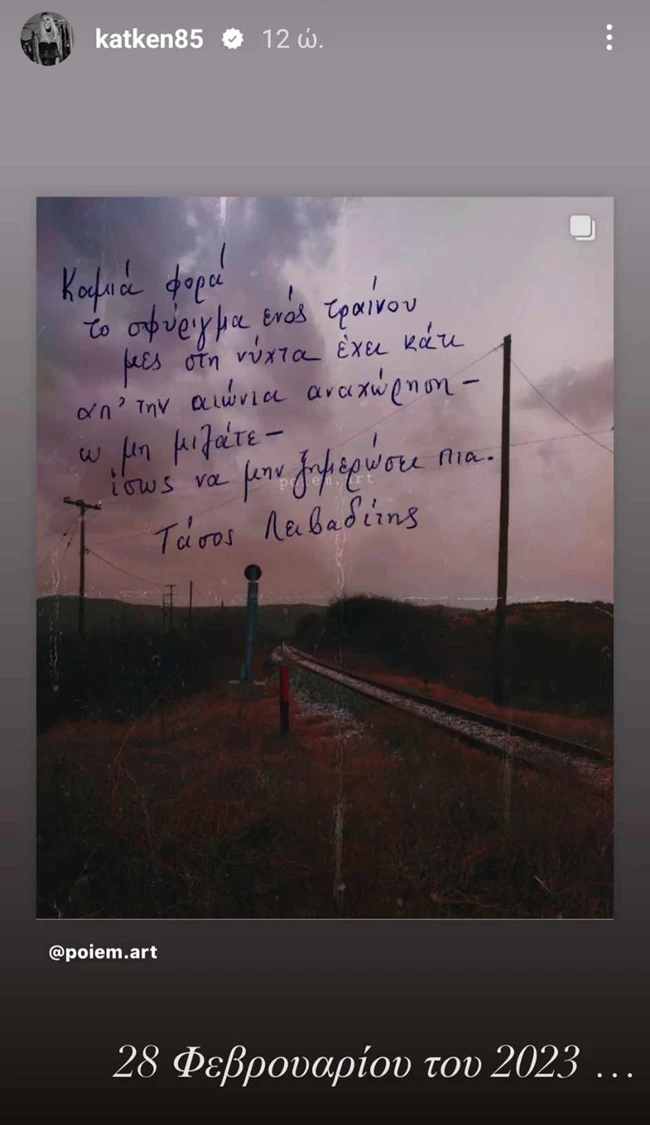 katken85 12 ώ.
Καμιά φορά
το σφύριγμα ενός τραίνου
μες στη νύχτα έχει κάτι
απ' την αιώνια αναχώρηση –
ω μη μιλάτε –
ίσως να μην ξημερώσει πια.
poiem.art
Τάσος Λειβαδίτης
@poiem.art
28 Φεβρουαρίου του 2023 ...